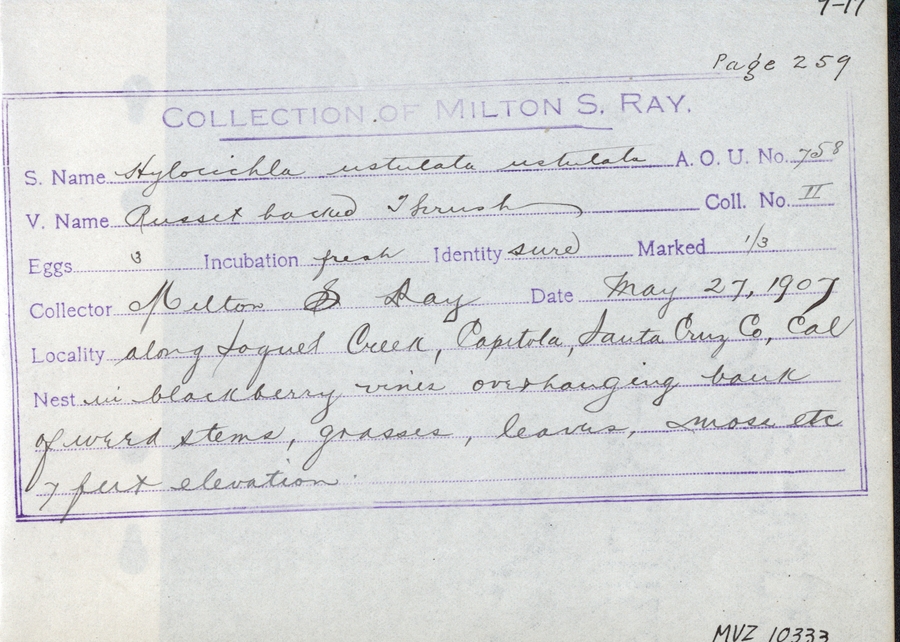 7-17
Page 259
COLLECTION OF MILTON S. RAY.
S. Name Hylocichla ustulata ustulata A. O. U. No. 758
V. Name Russet backed Thrush Coll. No. II
Eggs 3 Incubation fresh Identity sure Marked 1/3
Collector Milton S Ray Date May 27, 1907
Locality along Soquel Creek, Capitola, Santa Cruz Co, Cal
Nest in blackberry vines overhanging bank
of weed stems, grasses, leaves, moss etc
7 feet elevation
MVZ 10333